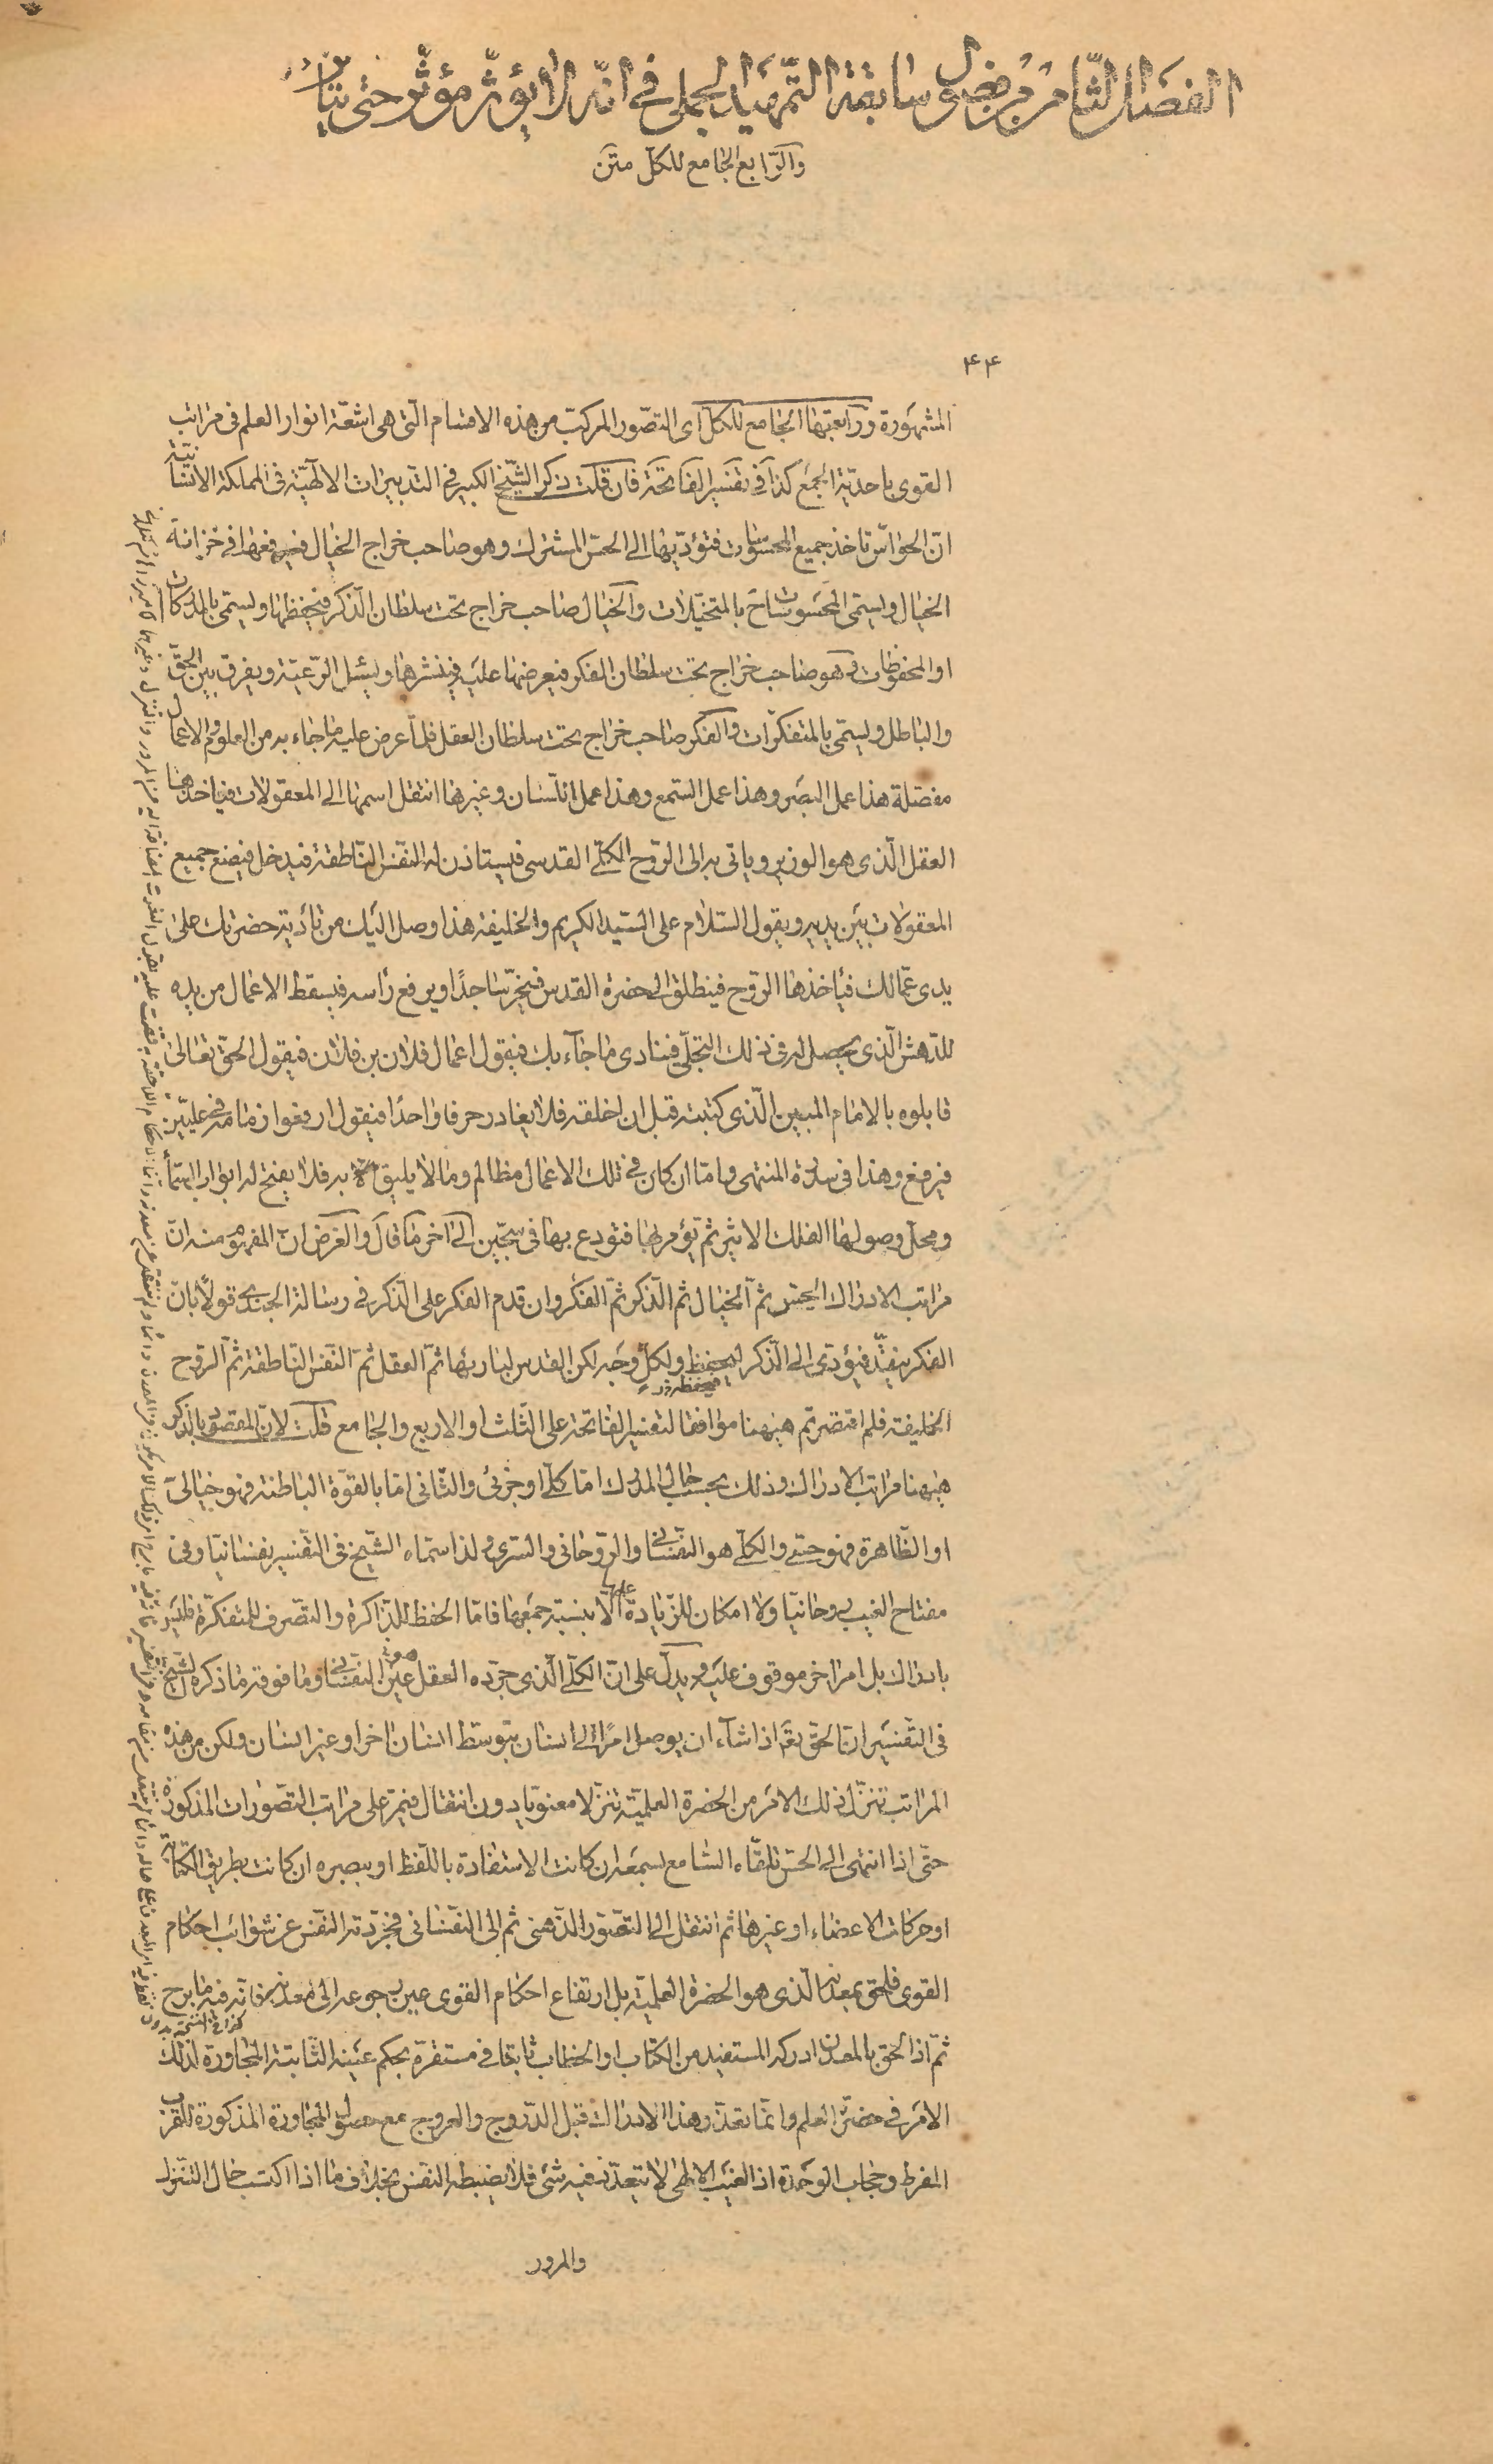 الفصل الثامن من فصول سابقة التمهيد الجملى فى انه لا يؤثر مؤثر حتى يتأثر
والرابع الجامع للكل متن
۴۴
المشهورة ورابعتها الجامع للكل اى التصور المركب من هذه الاقسام التى هى اشعة انوار العلم فى مراتب
القوى باحدية الجمع كذا فى تفسير الفاتحة فان قلت ذكر الشيخ الكبير فى التدبيرات الالهية فى المملكة الانسانية
ان الحواس تاخذ جميع المحسوسات فتؤديها الى الحس المشترك وهو صاحب خراج الخيال فيرفعها فى خزانة
الخيال ويسمى المحسوسات ح بالمتخيلات والخيال صاحب خراج تحت سلطان الذكر فيحفظها ويسمى بالمذكرات
او المحفوظات وهو صاحب خراج تحت سلطان الفكر فيعرضها عليه فينشرها ويسئل الرعية ويفرق بين الحق
والباطل ويسمى بالمتفكرات والفكر صاحب خراج تحت سلطان العقل فلما عرض عليه ما جاء به من العلوم والاعمال
مفصلة هذا عمل البصر وهذا عمل السمع وهذا عمل اللسان وغيرها انتقل اسمها الى المعقولات فياخذها
العقل الذى هو الوزير وياتى به الى الروح الكلى القدسى فيستاذن له النفس الناطقة فيدخل فيضع جميع
المعقولات بين يديه ويقول السلام على السيد الكريم والخليفة هذا وصل اليك من بادية حضرتك على
يدى عمالك فياخذها الروح فينطلق الى حضرة القدس فيخر ساجدا ويرفع راسه فيسقط الاعمال من يده
للدهش الذى يحصل له فى ذلك التجلى فينادى ما جاء بك فيقول اعمال فلان بن فلان فيقول الحق تعالى
قابلوه بالامام المبين الذى كتبته قبل ان اخلقه فلا يغادر حرفا واحدا فيقول ارفعوا زمامه فى عليين
فيرفع وهذا فى سدرة المنتهى واما ان كان فى تلك الاعمال مظالم وما لا يليق به فلا يفتح له ابواب السماء
ومحل وصولها الفلك الاثير ثم يؤمر بها فتودع بها فى سجين الى آخر ما قال والغرض ان المفهوم منه ان
مراتب الادراك الحس ثم الخيال ثم الذكر ثم الفكر وان قدم الفكر على الذكر فى رسالة الجندى قولا بان
الفكر ينفذ فيؤدى الى الذكر ليحفظ ولكل وجه لكن القدس لباريها ثم العقل ثم النفس الناطقة ثم الروح
الخليفة فلم اقتصر ثم هيهنا موافقا لتفسير الفاتحة على الثلث او الاربع والجامع قلت لان المقصود بالذكر
هيهنا مراتب الادراك وذلك بحسب حال المدرك اما كلى او جزئى والثانى اما بالقوة الباطنة فهو خيالى
او الظاهرة فهو حسى والكلى هو النفسانى والروحانى والسرى ولذا سماه الشيخ فى التفسير نفسانيا وفى
مفتاح الغيب روحانيا ولا امكان للزيادة عليها الا بنسبة جمعها فاما الحفظ للذاكرة والتصرف للمتفكرة فليس
بادراك بل امر اخر موقوف عليه ويدل على ان الكلى الذى جرده العقل عين النفسانى وما فوقه ما ذكره الشيخ
فى التفسير ان الحق تعالى اذا شاء ان يوصل امرا الى انسان بتوسط انسان اخر او غير انسان ولكن من هذه
المراتب تنزل ذلك الامر من الحضرة العلمية تنزلا معنويا دون انتقال فيمر على مراتب التصورات المذكورة
حتى اذا انتهى الى الحس تلقاه السامع بسمعه ان كانت الاستفادة باللفظ او ببصره ان كانت بطريق الكتابة
او حركات الاعضاء او غيرها ثم انتقل الى التصور الذهنى ثم الى النفسانى فجردته النفس عن شوائب احكام
القوى فلحق بمعدنه الذى هو الحضرة العلمية بل ارتفاع احكام القوى عين رجوعه الى معدنه فانه فيه ما برح
ثم اذا لحق بالمعدن ادركه المستفيد من الكتاب او الخطاب ثابتا فى مستقره بحكم عينه الثابتة المجاورة لذلك
الامر فى حضرة العلم وانما تعذر هذا الادراك قبل الدروج والعروج مع حصول المجاورة المذكورة للقرب
المفرط وحجاب الوحدة اذ الغيب الالهى لا يتعدد فيه شىء فلا يضبطه النفس بخلاف ما اذا اكتسب حال التنزل
والمرور